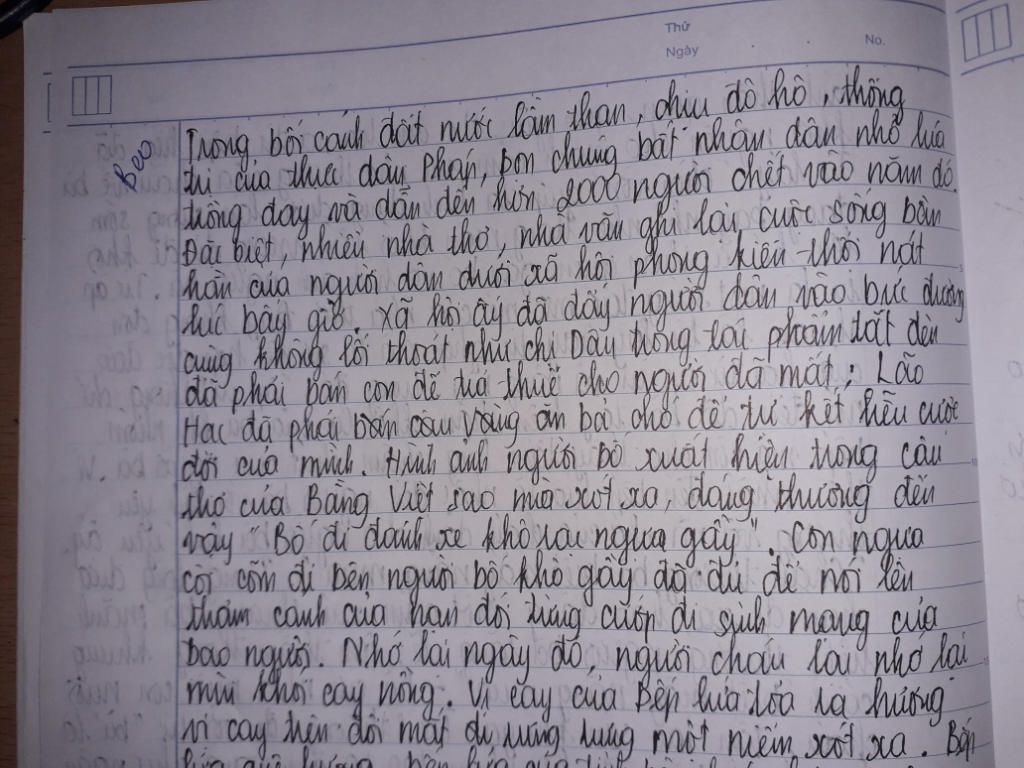 Thứ
Ngày
No.
Beo
Trong bối cảnh đất nước lầm than, chịu đô hộ, thống
trị của thực dân Pháp, bọn chúng bắt nhân dân nhổ lúa
trồng đay và dẫn đến hơn 2000 người chết vào năm đó.
Đặc biệt, nhiều nhà thơ, nhà văn ghi lại cuộc sống bần
hàn của người dân dưới xã hội phong kiến thối nát
lúc bấy giờ. Xã hội ấy đã đẩy người dân vào bước đường
cùng không lối thoát như chị Dậu trong tác phẩm tắt đèn
đã phải bán con để trả thuế cho người đã mất; Lão
Hạc đã phải bán cậu Vàng ăn bả chó để tự kết liễu cuộc
đời của mình. Hình ảnh người bố xuất hiện trong câu
thơ của Bằng Việt sao mà xót xa, đáng thương đến
vậy "Bố đi đánh xe khô rạc ngựa gầy". Con ngựa
còi cõm đi bên người bố khô gầy đã đủ để nói lên
thảm cảnh của nạn đói từng cướp đi sinh mạng của
bao người. Nhớ lại ngày đó, người cháu lại nhớ lại
mùi khói cay nồng. Vị cay của Bếp lửa tỏa ra hương
vị cay trên đôi mắt đi rưng rưng một niềm xót xa. Bếp
lửa quê hương, bếp lửa của tình